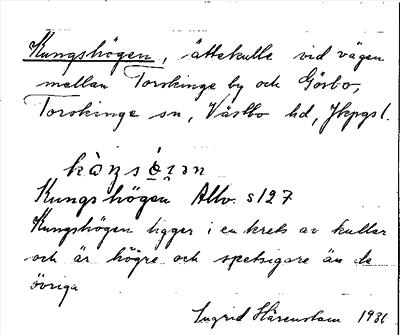 Kungshögen, ättekulle vid vägen
mellan Torskinge by och Gösbo,
Torskinge sn, Västbo hd, Jkpgs l.
Kungshögen Allv. s127
Kungshögen ligger i en krets av kullar
och är högre och spetsigare än de
övriga
Ingrid Härenstam 1936